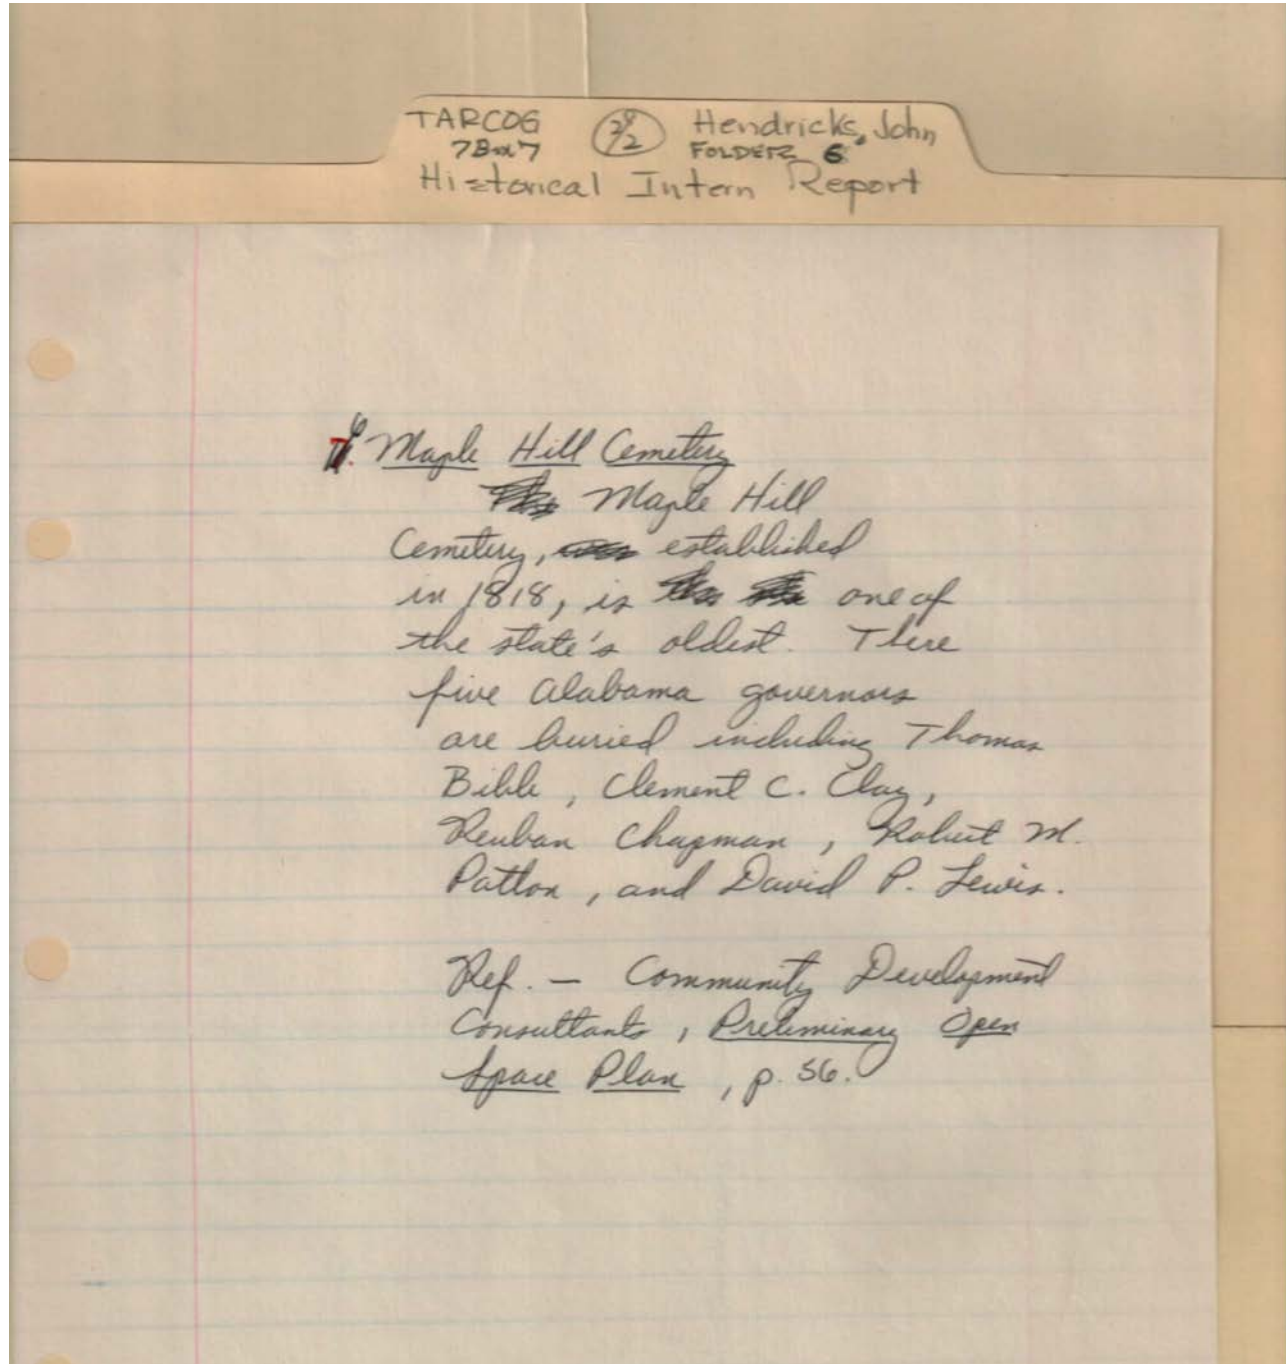 TARCOG 2/2 Hendricks, John
7Box7 FOLDER 6
Historical Intern Report
Maple Hill Cemetery
Maple Hill
Cemetery, established
in 1818, is one of
the state's oldest. There
five Alabama governors
are buried including Thomas
Bibb, Clement C. Clay,
Reuban Chapman, Robert M.
Patton, and David P. Lewis.
Ref. — Community Development
Consultants, Preliminary Open
Space Plan, p. 56.